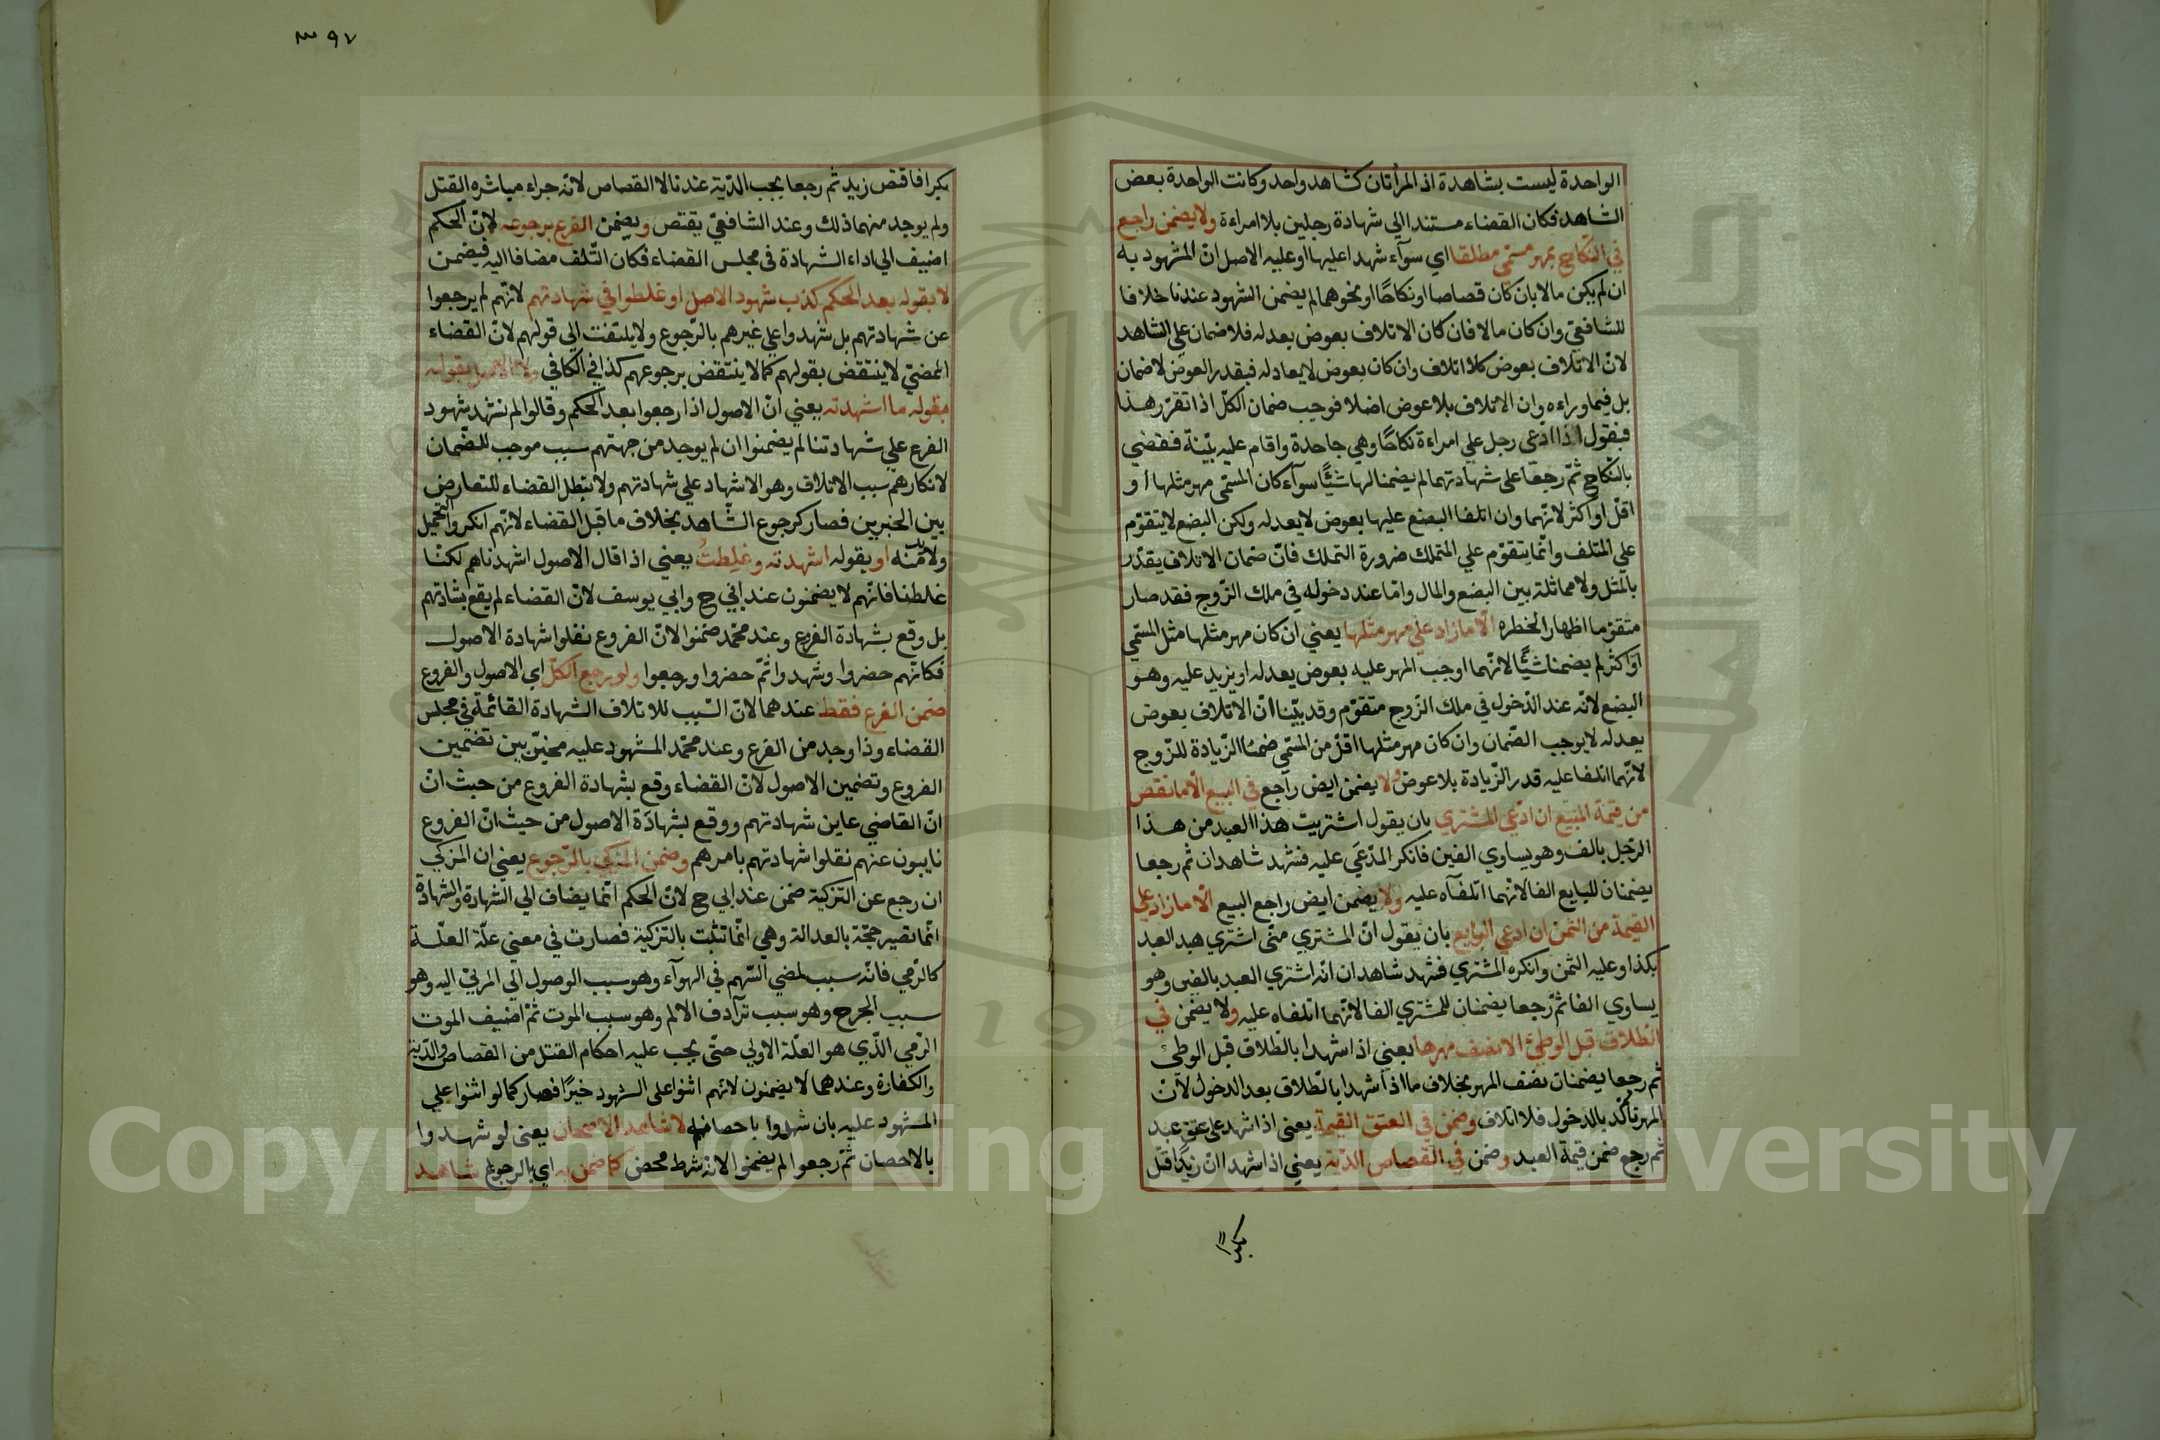 الواحدة ليست بشاهدة اذ المرأتان كشاهد واحد وكانت الواحدة بعض
الشاهد فكان القضاء مستندا الي شهادة رجلين بلا امراءة ولا يضمن راجع
في النكاح بمهر مسمي مطلقا اي سوآء شهدا عليها او عليه الاصل ان المشهود به
ان لم يكن مالا بان كان قصاصا او نكاحًا او نحوهما لم يضمن الشهود عندنا خلافا
للشافعيّ وان كان مالا فان كان الاتلاف بعوض يعدله فلا ضمان علي الشاهد
لانّ الاتلاف بعوض كلا اتلاف وان كان بعوض لا يعادله فبقدر العوض لا ضمان
بل فيما وراءه وان الاتلاف بلا عوض اصلا فوجب ضمان الكلّ اذا تقرّر هذا
فنقول اذا ادّعى رجل علي امراءة نكاحًا وهي جاحدة واقام عليه بيّنة فقضي
بالنكاح ثمّ رجعا على شهادتهما لم يضمنا لها شيئًا سوآء كان المسمّي مهر مثلها او
اقلّ او اكثر لانّهما وان اتلفا البضع عليها بعوض لا يعدله ولكن البضع لا يتقوّم
علي المتلف وانّما يتقوّم علي المتملك ضرورة التملك فانّ ضمان الاتلاف يقدّر
بالمثل ولا مماثلة بين البضع والمال وامّا عند دخوله في ملك الزّوج فقد صار
متقوّما اظهارا لخطره الّا ما زاد علي مهر مثلها يعني ان كان مهر مثلها مثل المسمّي
او اكثر لم يضمنا شيئًا لانّهما اوجب المهر عليه بعوض يعدله او يزيد عليه وهو
البضع لانّه عند الدّخول في ملك الزّوج متقوّم وقد بيّنا انّ الاتلاف بعوض
يعدله لا يوجب الضّمان وان كان مهر مثلها اقلّ من المسمّي ضمنا الزّيادة للزّوج
لانّهما اتلفا عليه قدر الزّيادة بلا عوض ولا يضمن ايض راجع في البيع الّا ما نقص
من قيمة المبيع ان ادّعي المشتري بان يقول اشتريت هذا العبد من هذا
الرّجل بالف وهو يساوي الفين فانكر المدّعَي عليه فشهد شاهدان ثم رجعا
يضمنان للبايع الفا لانّهما اتلفاه عليه ولا يضمن ايض راجع البيع الّا ما زاد علي
القيمة من الثمن ان ادعي البايع بان يقول انّ المشتري منّى اشتري هبد العبد
بكذا وعليه الثمن وانكره المشتري فشهد شاهدان انّه اشتري العبد بالفين وهو
يساوي الفا ثمّ رجعا يضمنان للمشتري الفا لانّهما اتلفاه عليه ولا يضمن في
الطّلاق قبل الوطئ الا نصف مهرها يعني اذا شهدا بالطّلاق قبل الوطئ
ثم رجعا يضمنان نصف المهر بخلاف ما اذا شهدا بالطّلاق بعد الدخول لانّ
المهر تأكّد بالدخول فلا اتلاف وضمن في العتق القيمة يعني اذا شهد على عتق عبد
ثم رجع ضمن قيمة العبد وضمن في القصاص الدّية يعني اذا شهدا انّ زيدًا قتل
بكرًا
٣٩٧
بكرا فاقتصّ زيد ثم رجعا يجب الدّية عندنا لا القصاص لانّه جراء مباشرة القتل
ولم يوجد منهما ذلك وعند الشافعيّ يقتص ويضمن الفرع برجوعه لانّ الحكم
اضيف الي اداء الشهادة فى مجلس القضاء فكان التّلف مضافا اليه فيضمن
لا بقوله بعد الحكم كذب شهود الاصل او غلطوا في شهادتهم لانّهم لم يرجعوا
عن شهادتهم بل شهدوا علي غيرهم بالرّجوع ولا يلتفت الي قولهم لانّ القضاء
الممضيّ لا ينتقض بقولهم كما لا ينتقض برجوعهم كذا في الكافي ولا الاصل بقوله
بقوله ما اشهدته يعني انّ الاصول اذا رجعوا بعد الحكم وقالوا لم نشهد شهود
الفرع علي شهادتنا لم يضمنوا ان لم يوجد من جهتهم سبب موجب للضّمان
لانكارهم سبب الاتلاف وهو الاشهاد علي شهادتهم ولا تبطل القضاء للتعارض
بين الخبرين فصار كرجوع الشّاهد بخلاف ما قبل القضاء لانّهم انكروا التحميل
ولا بدّ منه او بقوله اشهدته وغلِطتُ يعني اذا قال الاصول اشهدناهم لكنّا
غلطنا فانّهم لا يضمنون عند ابي ح وابي يوسف لانّ القضاء لم يقع بشهادتهم
بل وقع بشهادة الفروع وعند محمّد ضمنوا لانّ الفروع نقلوا شهادة الاصول
فكانّهم حضروا وشهدوا ثمّ حضروا ورجعوا ولو رجع الكلّ اي الاصول والفروع
ضمن الفرع فقط عندهما لانّ السّبب للاتلاف الشهادة القائمة في مجلس
القضاء وذا وجد من الفرع وعند محمّد المشهود عليه مخيّر بين تضمين
الفروع وتضمين الاصول لانّ القضاء وقع بشهادة الفروع من حيث انّ
انّ القاضي عاين شهادتهم ووقع بشهادة الاصول من حيث انّ الفروع
نايبون عنهم نقلوا شهادتهم بامرهم وضمن المزكّي بالرّجوع يعني ان المزكي
ان رجع عن التّزكية ضمن عند ابي ح لانّ الحكم انّما يضاف الي الشهادة والشهادة
انّما تصير حجّة بالعدالة وهي انّما تثبت بالتزكية فصارت في معني علّة العلّة
كالرّمي فانّه سبب لمضي السّهم في الهوآء وهو سبب الوصول الي المرميّ اليه وهو
سبب الجرح وهو سبب ترآدف الالم وهو سبب الموت ثمّ اضيف الموت
الرّمي الّذي هو العلّة الاولي حتّى يجب عليه احكام القتل من القصاص والدّية
والكفارة وعندهما لا يضمنون لانّهم اثنوا على الشهود خيرًا فصار كما لو اثنوا علي
المشهود عليه بان شهدوا باحصانه لا شاهد الاحصان يعني لو شهدوا
بالاحصان ثمّ رجعوا لم يضمنوا لانّه شرط محض كما ضمن به اي بالرجوع شاهد
Copyright © King Saud University